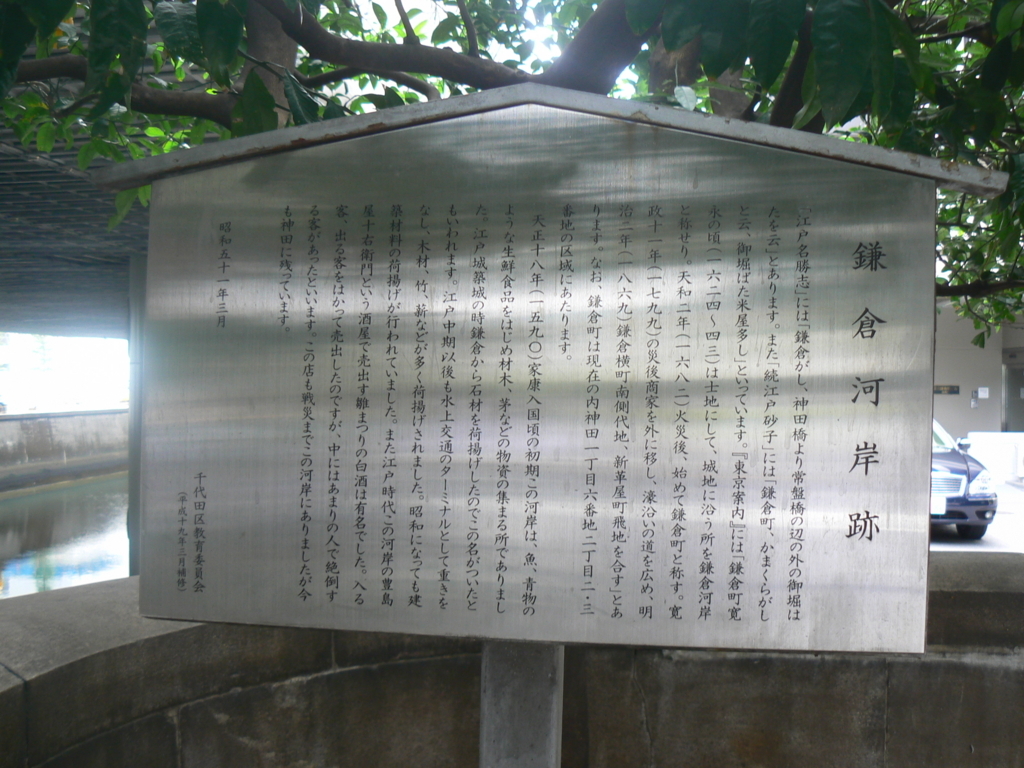 鎌倉河岸跡
『江戸名勝志』には「鎌倉がし、神田橋より常盤橋の辺の外の御堀は
たを云」とあります。また「続江戸砂子」には「鎌倉町、かまくらがし
と云、御堀ばた米屋多し」といっています。『東京案内』には「鎌倉町寛
永の頃(一六二四〜四三)は士地にして、城地に沿う所を鎌倉河岸
と称せり。天和二年(一六八二)火災後、始めて鎌倉町と称す。寛
政十一年(一七九九)の災後商家を外に移し、濠沿いの道を広め、明
治二年(一八六九)鎌倉横町南側代地、新革屋町飛地を合す」とあ
ります。なお、鎌倉町は現在の内神田一丁目六番地、二丁目二・三
番地の区域にあたります。
天正十八年(一五九〇)家康入国頃の初期、この河岸は、魚、青物の
ような生鮮食品をはじめ材木、茅などの物資の集まる所でありまし
た。江戸城築城の時鎌倉から石材を荷揚げしたのでこの名がついたと
もいわれます。江戸中期以後も水上交通のターミナルとして重きを
なし、木材、竹、薪などが多く荷揚げされました。昭和になっても建
築材料の荷揚げが行われていました。また江戸時代、この河岸の豊島
屋十右衛門という酒屋で売出す雛まつりの白酒は有名でした。入る
客、出る客をはかって売出したのですが、中にはあまりの人で絶倒す
る客があったといいます。この店も戦災までこの河岸にありましたが今
も神田に残っています。
昭和五十一年三月
千代田区教育委員会
(平成十九年三月補修)